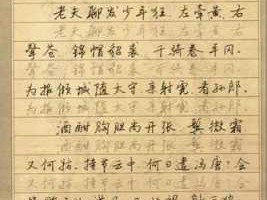 老夫聊发少年狂,左牵黄,右
擎苍 锦帽貂裘 千骑卷平冈.
为报倾城随太守 亲射虎 看孙郎.
酒酣胸胆尚开张,鬓微霜
又何妨.持节云中 何日遣冯唐.会